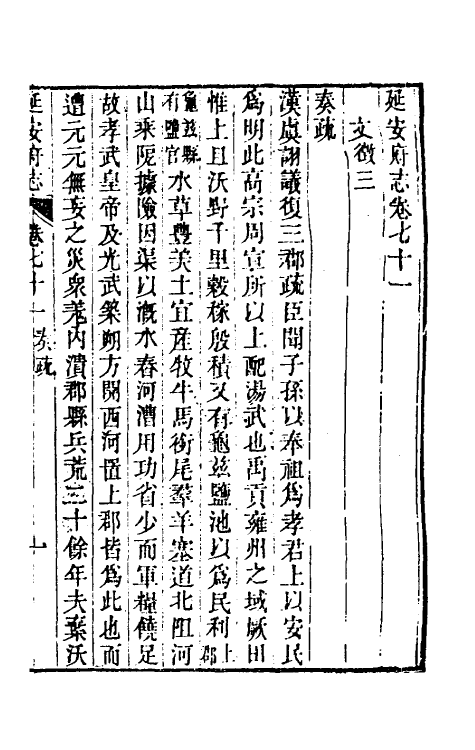 延安府志卷七十一
文徵三
奏疏
漢虞詡議復三郡疏臣聞子孫以奉祖爲孝君上以安民
爲明此高宗周宣所以上配湯武也禹貢雍州之域厥田
惟上且沃野千里穀稼殷積又有龜兹鹽池以爲民利上郡
龜兹縣有鹽官水草豐美土宜産牧牛馬銜尾羣羊塞道北阻河
山乘阨據險因渠以漑水舂河漕用功省少而軍糧饒足
故孝武皇帝及光武築朔方開西河置上郡皆爲此也而
遭元元無妄之災衆羌內潰郡縣兵荒二十餘年夫棄沃
延安府志 卷七十一 奏疏 一